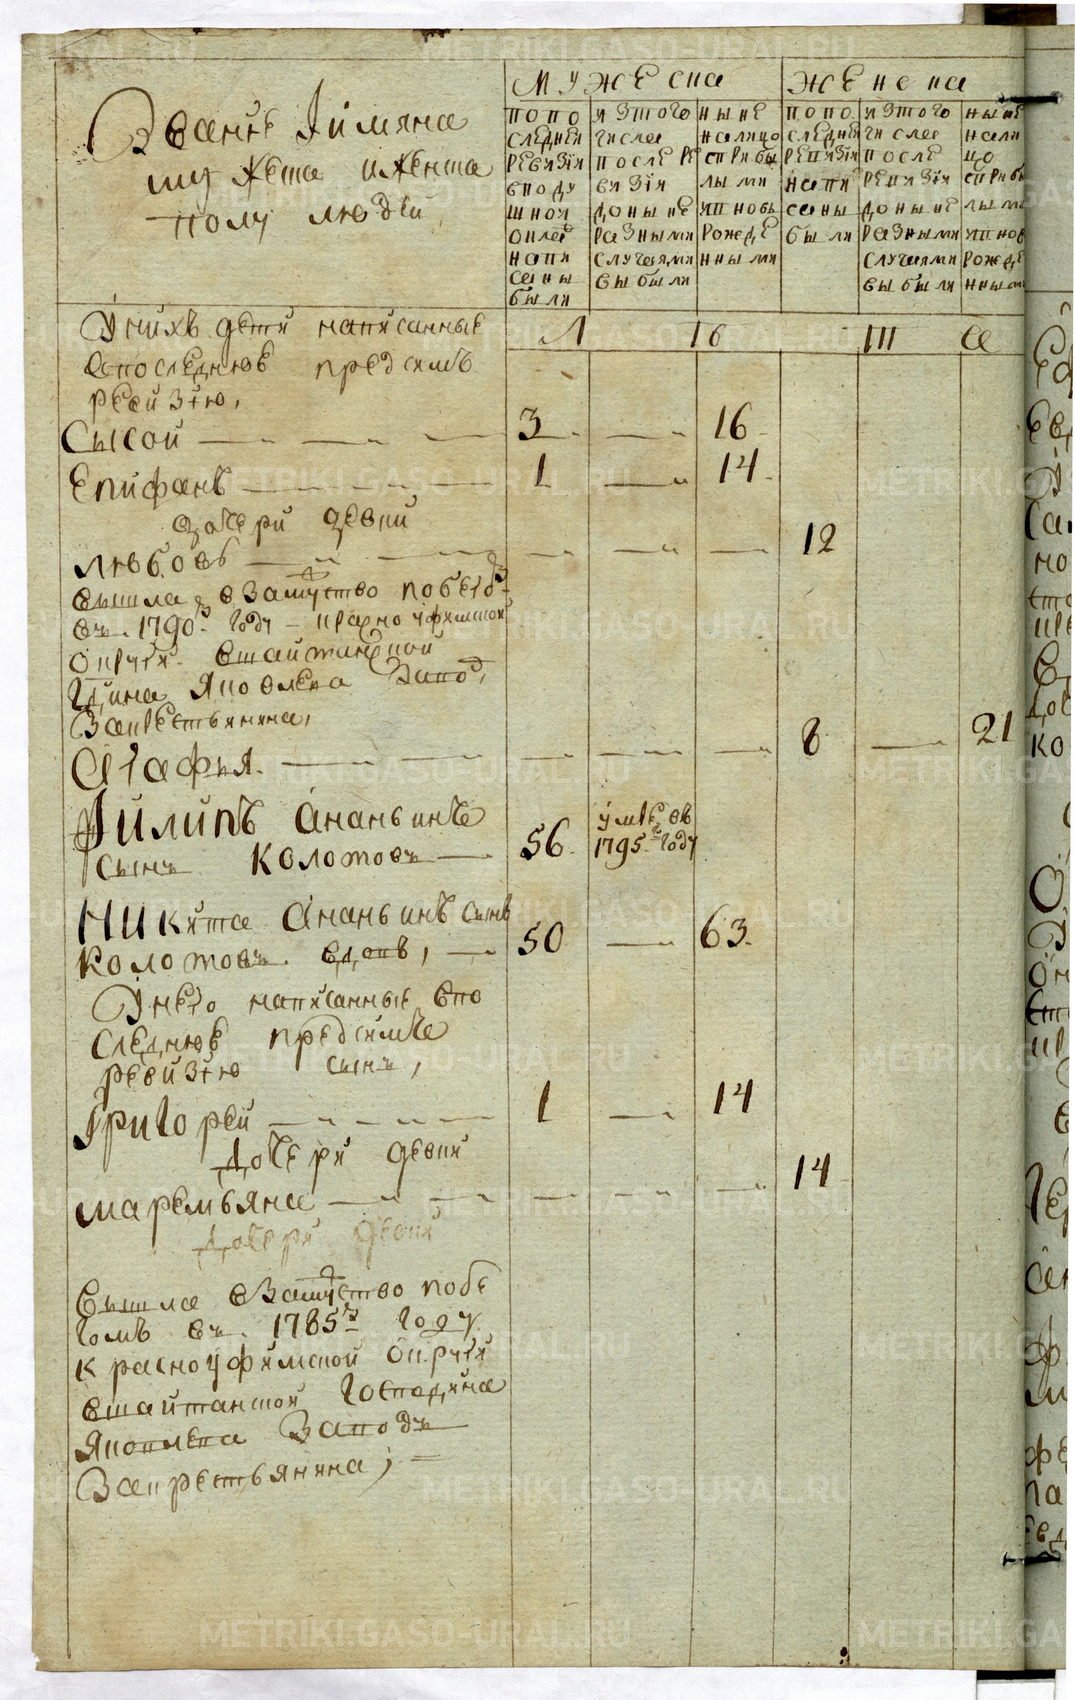 Званïе Iимяна
мужеска иженска
полу людей,
мужеска
женска
попо
следней
ревизïи
споду
шной
онлее
напи
саны
были
изтого
числа
после ре
визïи
доныне
разными
случаями
выбыли
ныне
налицо
сприбы
лыми
ипновь
рожде
нными
попо
следней
ревизïи
напи
саны
были
изтого
числа
после
ревизïи
доныне
разными
случаями
выбыли
ныне
нали
цо
сприбы
лыми
ипнов
рожде
нными
Уних дети написанные
спопоследнюю пред симъ
ревизïю,
л 16 III
Сысой 3 16
Епифанъ 1 14
дочери девки
Любовь 12
вышла взамужство побегъ
въ 1790 году красноуфимской
округи вшайтанской
Гдина Яковлева завод
Закрестьянина,
Агафья 8 21
Филипъ Ананьинъ
сынъ Колотовъ 56 умре въ
1795 году
Никита Ананьинъ сынъ
Колотовъ вдовъ, 50 63
Унего написанные впо
следнюю предсимъ
ревизïю сынъ,
Григорей 1 14
дочери девки
Маремьяна 14
дочери девки
вышла взамужство побе
гомъ въ 1785 году
красноуфимской округи
вшайтанской Господина
Яковлева заводъ
Закрестьянина,
METRIKI.GASO-URAL.RU